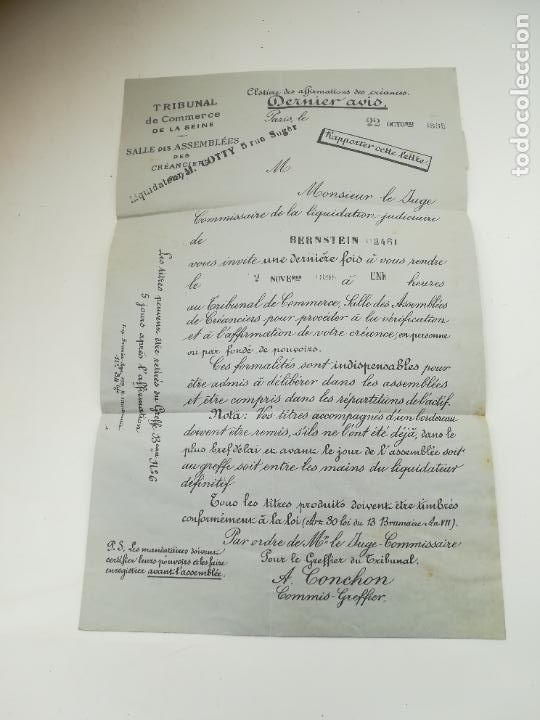 TRIBUNAL
de Commerce
DE LA SEINE
SALLE DES ASSEMBLÉES
DES
CRÉANCIERS
Liquidateur, M. COTTY 5 rue Suger
Clôture des affirmations des créances.
Dernier avis.
Paris, le 22 OCTOBRE 1895
Rapporter cette lettre
M
Monsieur le Juge
Commissaire de la liquidation judiciaire
de BERNSTEIN 02461
vous invite une dernière fois à vous rendre
le 2 NOVEMBRE 1895 à UNE heures
au Tribunal de Commerce, Salle des Assemblées
de Créanciers, pour procéder à la vérification
et à l'affirmation de votre créance, en personne
ou par fondé de pouvoirs.
Ces formalités sont indispensables pour
être admis à délibérer dans les assemblées
et être compris dans les répartitions de l'actif.
Nota: Vos titres accompagnés d'un bordereau
doivent être remis, s'ils ne l'ont été déjà, dans le
plus bref délai et avant le jour de l'assemblée soit
au greffe soit entre les mains du liquidateur
définitif.
Tous les titres produits doivent être timbrés
conformément à la loi (Art. 30 loi du 13 Brumaire An VII).
Par ordre de Mr le Juge-Commissaire
Pour le Greffier du Tribunal.
A. Conchon
Commis-Greffier.
Les titres peuvent être retirés du Greffe Bau No 6
5 jours après l'affirmation.
P.S. Les mandataires doivent
certifier leurs pouvoirs et les faire
enregistrer avant l'assemblée.
todocoleccion